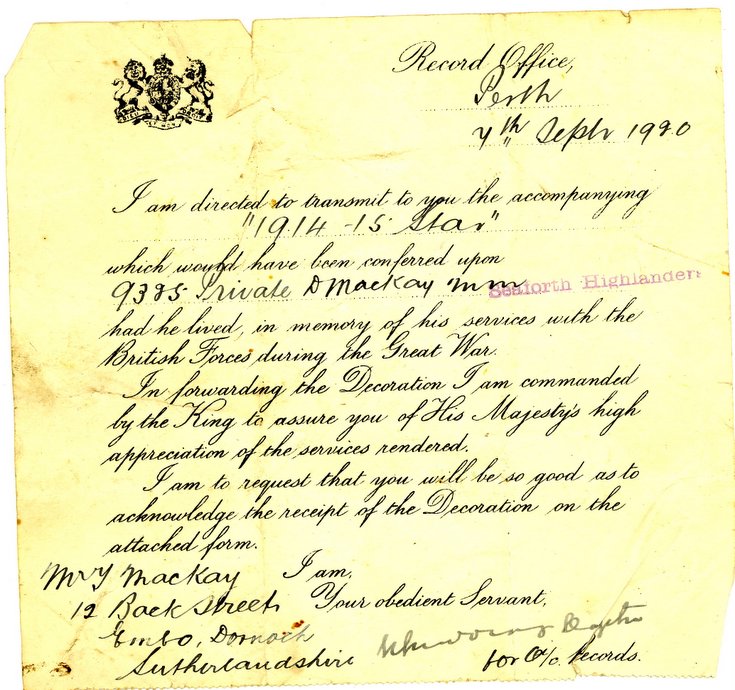 Record Office,
Perth
7th Septr 1920
I am directed to transmit to you the accompanying
"1914-15 Star"
which would have been conferred upon
9385 Private D Mackay MM Seaforth Highlanders
had he lived, in memory of his services with the
British Forces during the Great War.
In forwarding the Decoration I am commanded
by the King to assure you of His Majesty's high
appreciation of the services rendered.
I am to request that you will be so good as to
acknowledge the receipt of the Decoration on the
attached form.
I am,
Your obedient Servant,
for O/c. Records.
Mr J Mackay
12 Back Street
Embo, Dornoch
Sutherlandshire